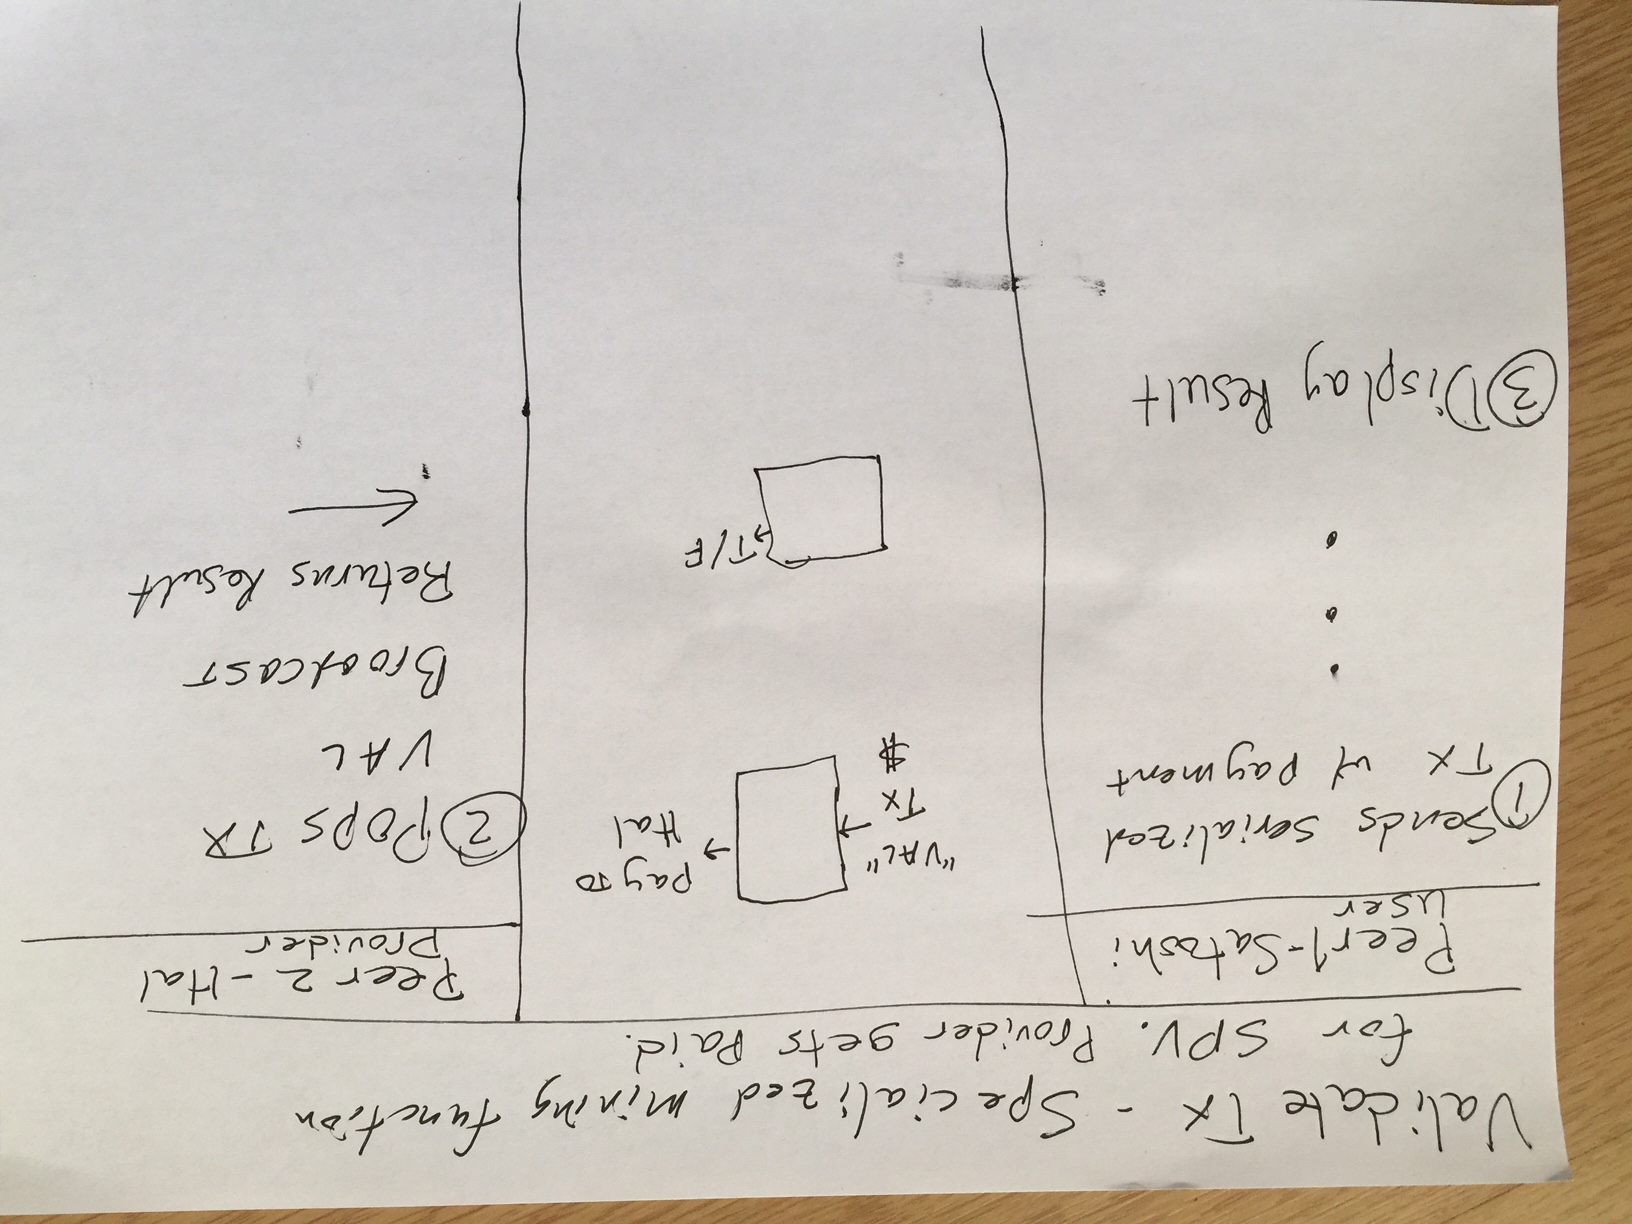 Validate Tx - Specialized mining function
for SPV. Provider gets Paid.
Peer1-Satoshi
User
① Sends serialized
TX w/ payment
③ Display Result
"VAL"
Tx
$
→ pay TO
Hal
→ T/F
Peer 2 - Hal
Provider
② POPS TX
VAL
Broadcast
Returns Result
←